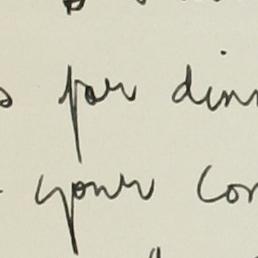 for din
your con